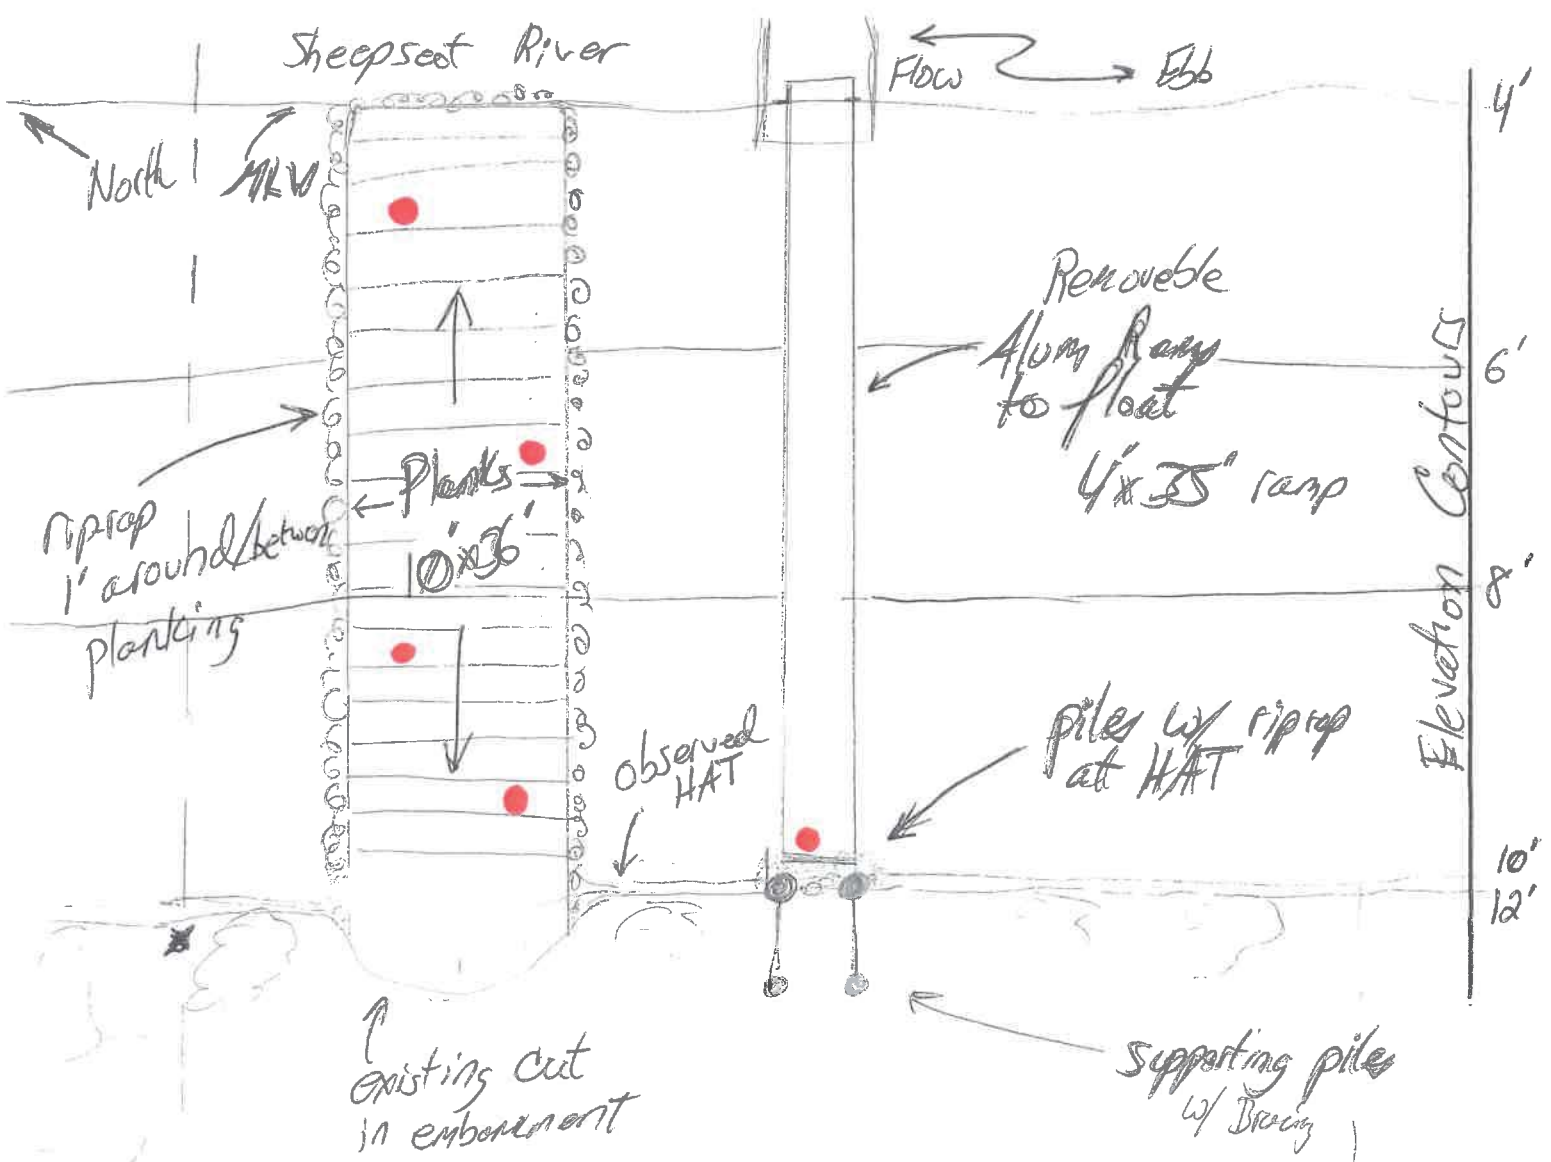 Sheepscot River
Flow
Ebb
4'
North
MLW
Removeble
Alum Ramp
to float
4'x35' ramp
6'
Elevation Contours
riprap
1' around/between
planking
Planks
10'x36'
8'
observed
HAT
piles w/ riprap
at HAT
10'
12'
existing cut
in embankment
supporting piles
w/ Bracing